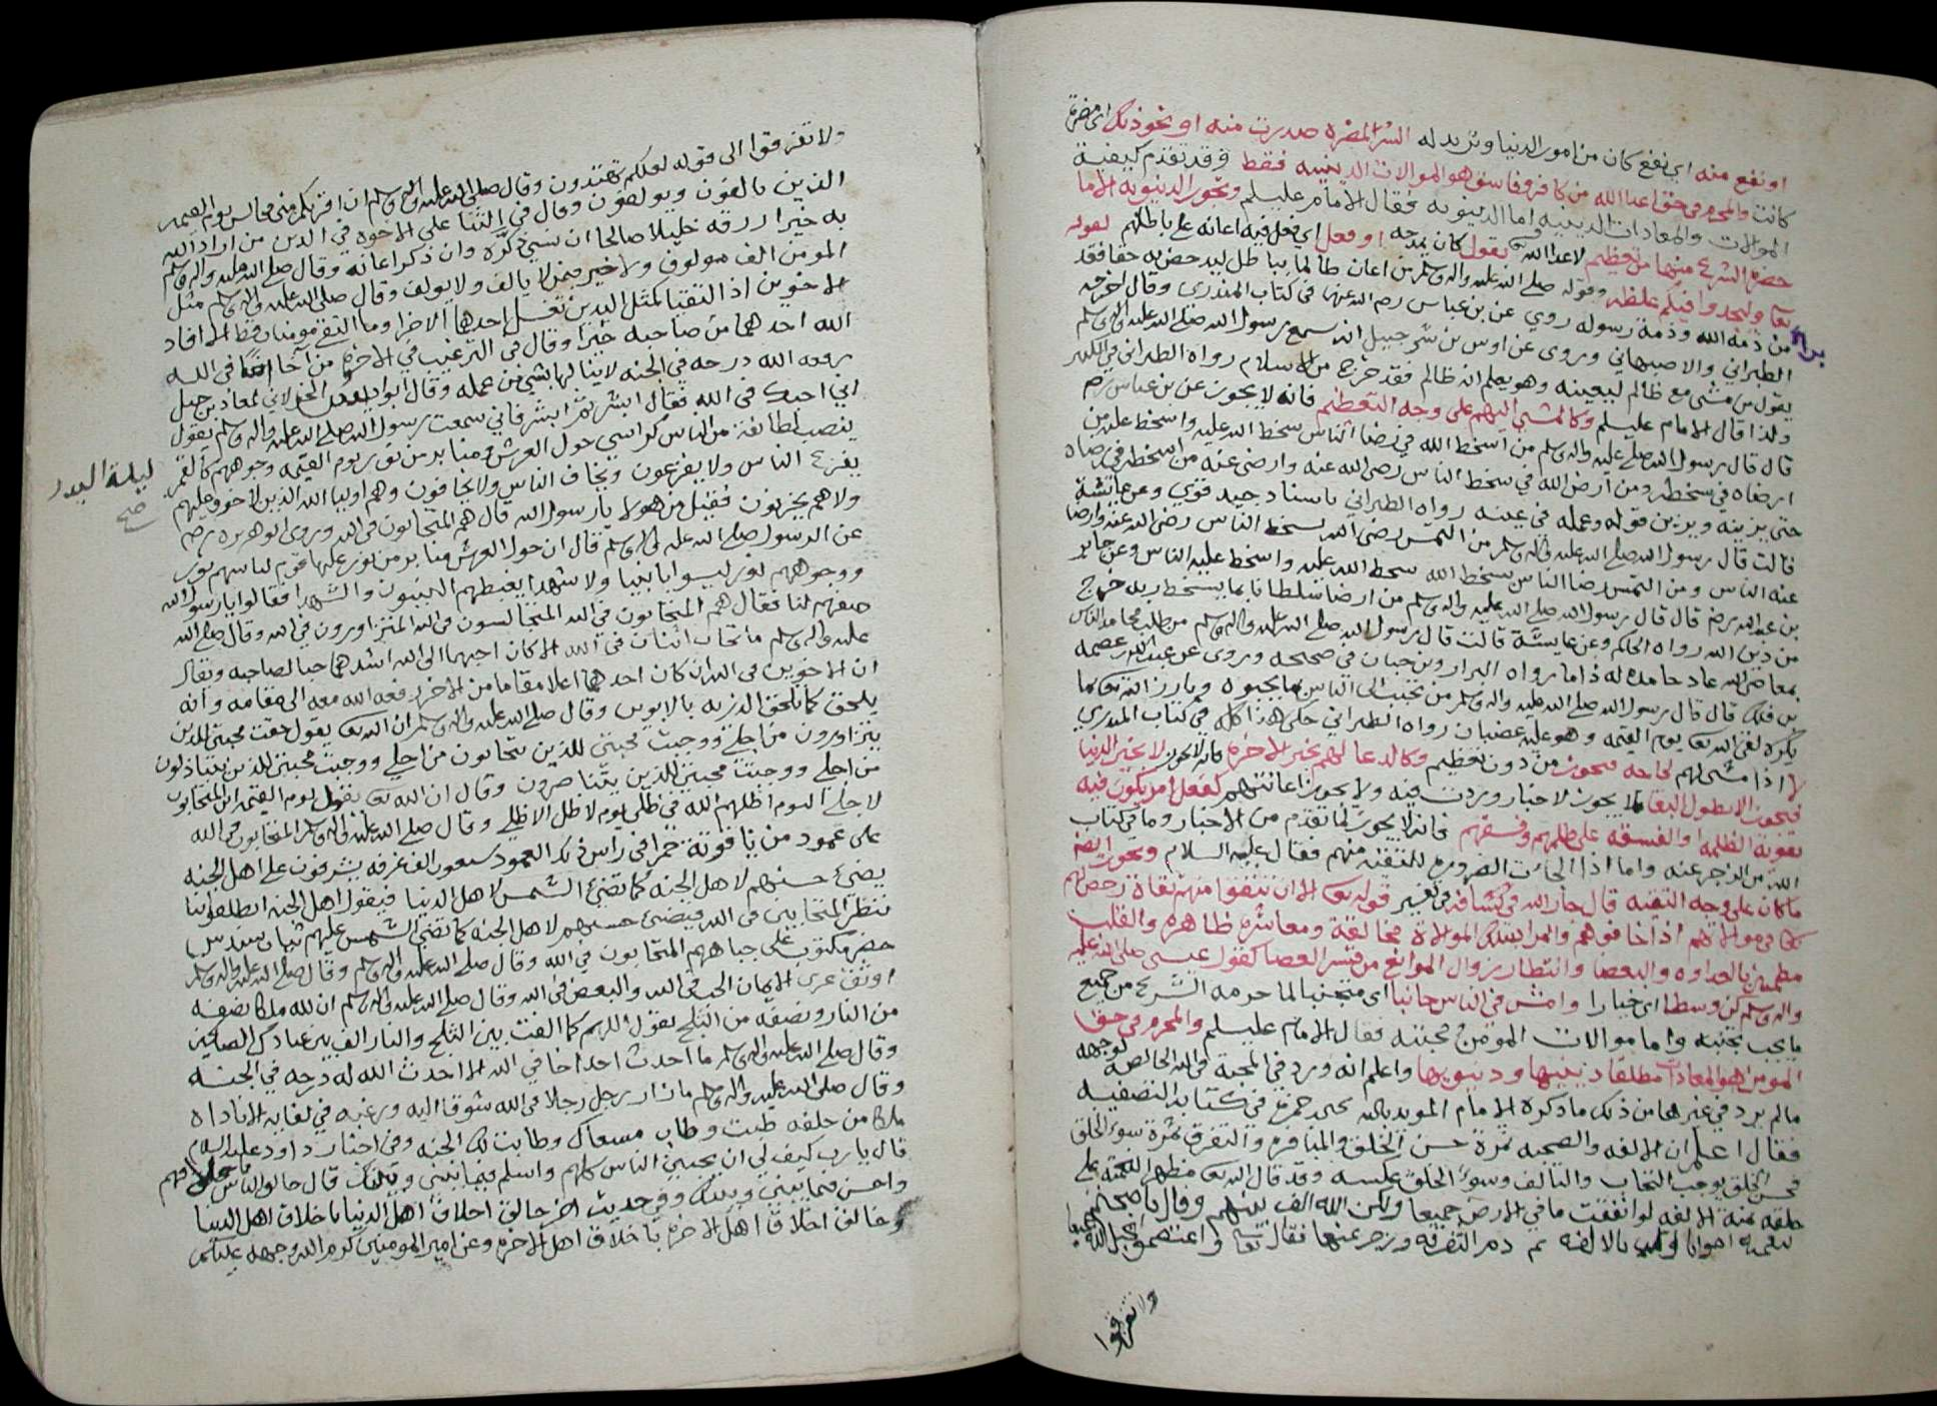 او نفع منه اي نفع كان من امور الدنيا وتريد له الشر المضره صدرت منه او نحو ذلك
كانت والمحرم في حق اعدا الله من كافر وفاسق هو الموالات الدينيه فقط وقد تقدم كيفية
الموالات والمعادات الدينيه اما الدنيويه فقال الامام عليلم وتجوز الدنيويه الا ما
حضره الشرع منها من تعظيم لاعدا الله بقول كان يمدحه او فعل اي فعل فيه اعانه على باطلهم لقوله
تعا وليجدوا فيكم غلظه وقوله صلى الله عليه واله وسلم من اعان ظالما بباطل ليدحض به حقا فقد
من ذمة الله وذمة رسوله روي عن بن عباس رضي الله عنهما في كتاب المنذري وقال اخرجه
الطبراني والاصبهاني وروى عن اوس بن شرحبيل انه سمع رسول الله صلى الله عليه واله وسلم
يقول من مشى مع ظالم ليعينه وهو يعلم انه ظالم فقد خرج من الاسلام رواه الطبراني في الكبير
ولذا قال الامام عليلم وكالمشي اليهم على وجه التعظيم فانه لا يجوز عن بن عباس رضي
قال قال رسول الله صلى الله عليه واله وسلم من اسخط الله في رضا الناس سخط الله عليه واسخط عليه من
ارضاه في سخطه ومن ارضى الله في سخط الناس رضي الله عنه وارضى عنه من اسخطه في رضاه
حتى يزينه ويزين قوله وعمله في عينه رواه الطبراني باسناد جيد قوي وعن عائشة
قالت قال رسول الله صلى الله عليه واله وسلم من التمس رضى الله بسخط الناس رضي الله عنه وارضا
عنه الناس ومن التمس رضا الناس بسخط الله سخط الله عليه واسخط عليه الناس وعن جابر
بن عبد الله رضي قال قال رسول الله صلى الله عليه واله وسلم من ارضا سلطانا بما يسخط ربه خرج
من دين الله رواه الحاكم وعن عايشة قالت قال رسول الله صلى الله عليه واله وسلم من طلب محامد الناس
بمعاصي الله عاد حامده له ذاما رواه البزار وبن حبان في صحيحه وروى عن عبد الله بن عصمه
بن فاتك قال قال رسول الله صلى الله عليه واله وسلم من تحبب الى الناس بما يحبوه وبارز الله تعا بما
يكره لقي الله تعا يوم القيمه وهو عليه غضبان رواه الطبراني حكى هذا كله في كتاب المنذري
لا اذا مشى لهم لحاجه فيجوز من دون تعظيم وكالدعا لهم بخير الاخره فانه لا يجوز لا بخير الدنيا
فيجوز الا بطول البقا فلا يجوز لاخبار وردت فيه ولا يجوز اعانتهم كفعل امر يكون فيه
تقوية الظلمه والفسقه على ظلمهم وفسقهم فانه لا يجوز لما تقدم من الاخبار وما في كتاب
الله من الزجر عنه واما اذا الجات الضروره للتقيه منهم فقال عليه السلام ويجوز ايضا
ما كان على وجه التقيه قال جار الله في كشافه في تفسير قوله تعا الا ان تتقوا منهم تقاة رخص لهم
في موالاتهم اذا خافوهم والمراد بتلك الموالاة مخالقة ومعاشره ظاهره والقلب
مطمين بالعداوه والبغضا وانتظار زوال الموانع من قشر العصا كقول عيسى صلى الله عليه
واله وسلم كن وسطا اي خيارا وامش في الناس جانبا اي متجنبا لما حرمه الشرع من جميع
ما يجب تجنبه واما موالات المومن ومحبته فقال الامام عليلم والمحرم في حق
المومن هو المعادات مطلقا دينيها ودنيويها واعلم انه ورد في المحبة في الله الخالصه لوجهه
مالم يرد في غيرها من ذلك ما ذكره الامام المويد بالله يحيى بن حمزه في كتابه التصفيه
فقال اعلم ان الالفه والصحبه ثمرة حسن الخلق والمنافره والتفرق ثمرة سوء الخلق
فحسن الخلق يوجب التحاب والتالف وسوء الخلق عكسه وقد قال الله تعا مظهرا للمنه على
خلقه بمنة الالفه لو انفقت ما في الارض جميعا ولكن الله الف بينهم وقال فاصبحتم
بنعمته اخوانا بالالفه ثم ذم التفرقه وزجر عنها فقال تعا واعتصموا بحبل الله جميعا
ولا تفرقوا
ولا تفرقوا الى قوله لعلكم تهتدون وقال صلى الله عليه واله وسلم ان اقربكم مني مجالس يوم القيمه
الذين يالفون ويولفون وقال في الثنا على الاخوه في الدين من اراد الله
به خيرا رزقه خليلا صالحا ان نسي ذكره وان ذكر اعانه وقال صلى الله عليه واله وسلم
المومن الف مولوف ولا خير فيمن لا يالف ولا يولف وقال صلى الله عليه واله وسلم مثل
الاخوين اذا التقيا كمثل اليدين تغسل احديهما الاخرا وما التقى مومنان قط الا افاد
الله احدهما من صاحبه خيرا وقال في الترغيب في الاخوه من آخا اخا في الله
رفعه الله درجه في الجنه لا ينالها بشي من عمله وقال ابو ادريس الخولاني لمعاذ بن جبل
اني احبك في الله فقال ابشر ثم ابشر فاني سمعت رسول الله صلى الله عليه واله وسلم يقول
ينصب لطائفة من الناس كراسي حول العرش ومنابر من نور يوم القيمه وجوههم كالقمر
ليلة البدر
صح
يفزع الناس ولا يفزعون ويخاف الناس ولا يخافون وهم اوليا الله الذين لا خوف عليهم
ولاهم يحزنون فقيل من هولا يا رسول الله قال هم المتحابون في الله وروى ابو هريره رضي
عن الرسول صلى الله عليه واله وسلم قال ان حول العرش منابر من نور عليها قوم لباسهم نور
ووجوههم نور ليسوا بانبيا ولا شهدا يغبطهم النبيون والشهدا فقالوا يا رسول الله
صفهم لنا فقال هم المتحابون في الله المتجالسون في الله المتزاورون في الله وقال صلى الله
عليه واله وسلم ما تحاب اثنان في الله الا كان احبهما الى الله اشدهما حبا لصاحبه ويقال
ان الاخوين في الله ان كان احدهما اعلا مقاما من الاخر رفعه الله معه الى مقامه وانه
يلحق كما تلحق الذريه بالابوين وقال صلى الله عليه واله وسلم ان الله تعا يقول حقت محبتي للذين
يتزاورون من اجلي ووجبت محبتي للذين يتحابون من اجلي ووجبت محبتي للذين يتباذلون
من اجلي ووجبت محبتي للذين يتناصرون وقال ان الله تعا يقول يوم القيمه اين المتحابون
لاجلي اليوم اظلهم الله في ظلي يوم لا ظل الا ظلي وقال صلى الله عليه واله وسلم المتحابون في الله
على عمود من ياقوتة حمرا في راس ذلك العمود سبعون الف غرفه يشرفون على اهل الجنه
يضيء حسنهم لاهل الجنه كما تضيء الشمس لاهل الدنيا فيقول اهل الجنه انطلقوا بنا
ننظر المتحابين في الله فيضيء حسنهم لاهل الجنه كما تضيء الشمس عليهم ثياب سندس
خضر مكتوب على جباههم المتحابون في الله وقال صلى الله عليه واله وسلم وقال صلى الله عليه واله وسلم
اوثق عرى الايمان الحب في الله والبغض في الله وقال صلى الله عليه واله وسلم ان لله ملكا نصفه
من النار ونصفه من الثلج يقول اللهم كما الفت بين الثلج والنار الف بين عبادك الصالحين
وقال صلى الله عليه واله وسلم ما احدث احد اخا في الله الا احدث الله له درجه في الجنه
وقال صلى الله عليه واله وسلم ما زار رجل رجلا في الله شوقا اليه ورغبه في لقايه الا ناداه
ملك من خلفه طبت وطاب ممشاك وطابت لك الجنه وفي اخبار داود عليه السلام
قال يا رب كيف لي ان يحبني الناس كلهم واسلم فيما بيني وبينك قال خالق الناس باخلاقهم
واحسن فيما بيني وبينك وفي حديث اخر خالق اخلاق اهل الدنيا باخلاق اهل الدنيا
وخالق اخلاق اهل الاخره باخلاق اهل الاخره وعن امير المومنين كرم الله وجهه عليكم